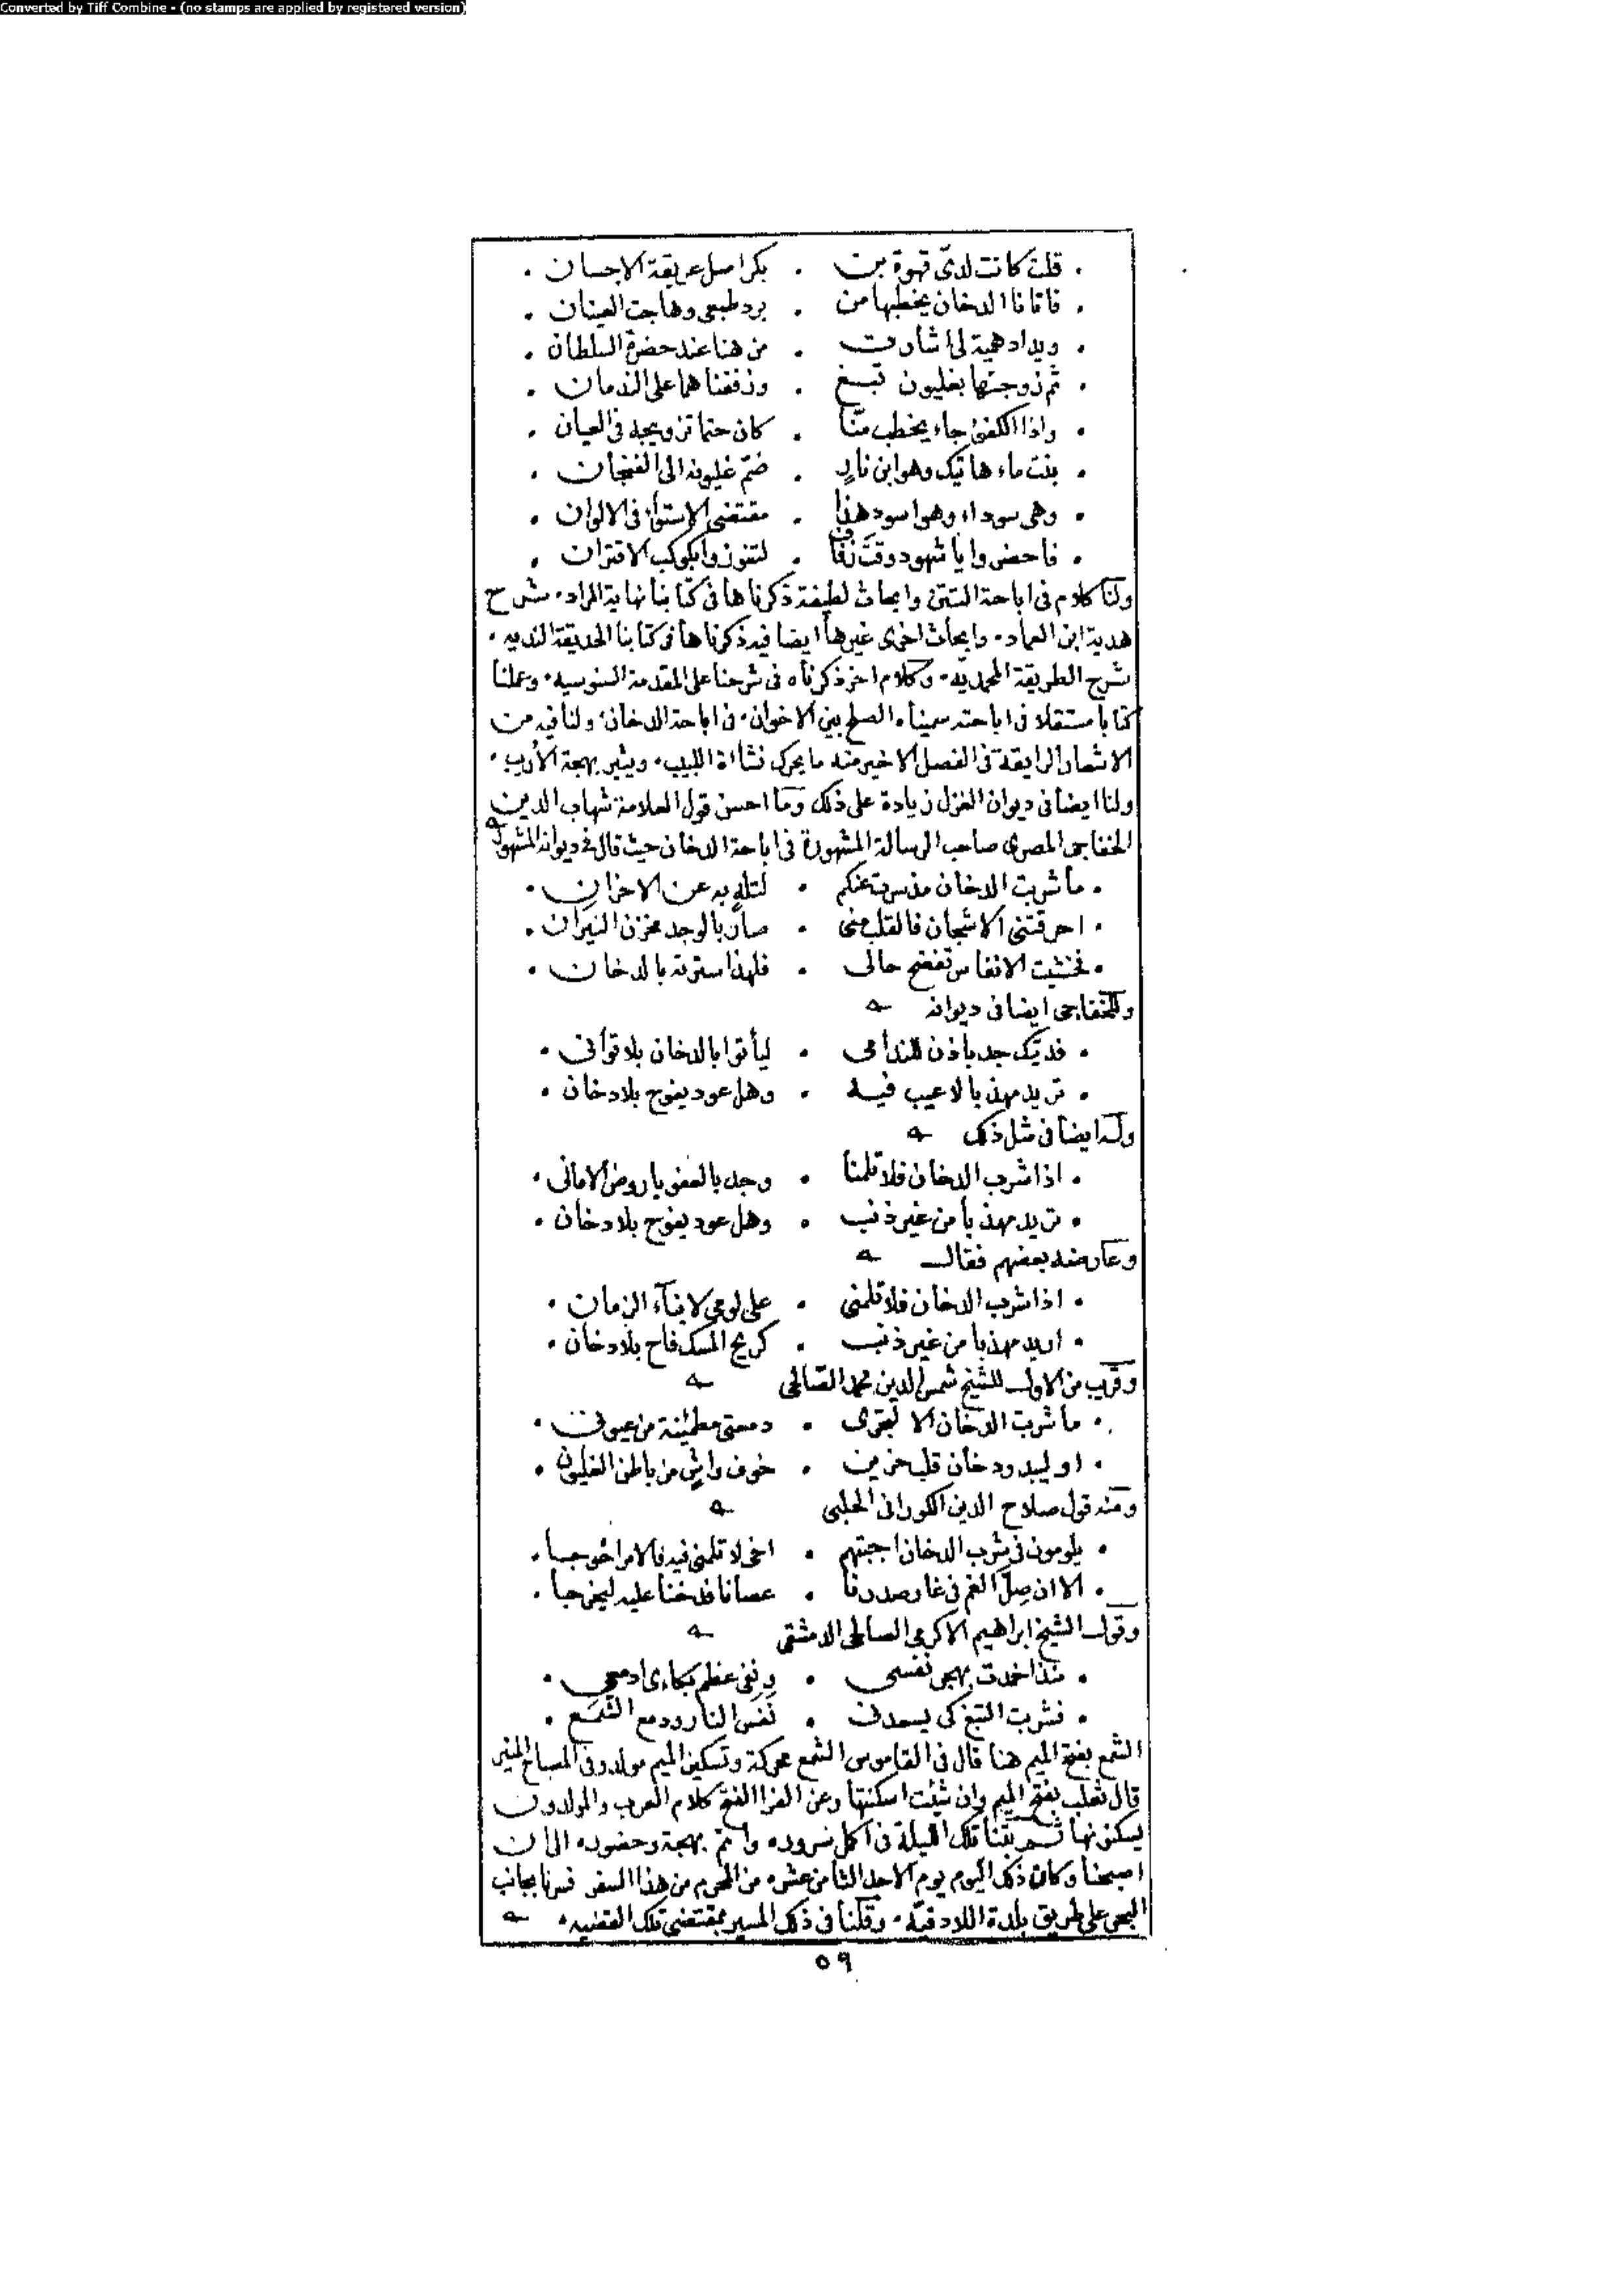 Converted by Tiff Combine - (no stamps are applied by registered version)
• قلت كانت لدى قهوة بن • بكر اصل عريقة الاحسان •
• فاتانا الدخان يخطبها من • برد طبعي وهاجت العينان •
• ويد ادهمية لي اشارت • من هنا عند حضرة السلطان •
• ثم زوجتها بغليون تبغ • وزففناهما على الندمان •
• واذا الكفئ جاء يخطب منا • كان حتما تزويجه في العيان •
• بنت ماء هاتيك وهو ابن نارٍ • ضمّ غليونه الى الفنجان •
• وهي سوداء وهو اسود هذا • مقتضى الاستواء في الالوان •
• فاحضروا يا شهود وقت زفاف • لتفوزوا بكوكب الاقتران •
ولنا كلام في اباحة التتن وابحاث لطيفة ذكرناها في كتابنا نهاية المراد • شرح
هدية ابن العماد • وابحاث اخرى غيرها ايضا فيه ذكرناها في كتابنا الحديقة النديه •
شرح الطريقة المحمدية • وكلام اخر ذكرناه في شرحنا على المقدمة السنوسيه • وعملنا
كتابا مستقلا في اباحته سميناه الصلح بين الاخوان • في اباحة الدخان • ولنا فيه من
الاشعار الرايقة في الفصل الاخير منه ما يحرك نشاة اللبيب • ويثير بهجة الأديب •
ولنا ايضا في ديوان الغزل زيادة على ذلك وما احسن قول العلامة شهاب الدين
الخفاجى المصرى صاحب الرسالة المشهورة في اباحة الدخان حيث قال في ديوانه المشهور
• ما شربت الدخان مذ سرت عنكم • لتلهٍ به عن الاحزان •
• احرقتني الاشجان فالقلب مني • صار بالوجد مخزن النيران •
• فخشيت الانفاس تفضح حالى • فلهذا سترته بالدخان •
وللخفاجى ايضا في ديوانه
• فديتك جد باذن للندامى • ليأتوا بالدخان بلا توانى •
• تريد مهذبا لا عيب فيه • وهل عود يفوح بلا دخان •
وله ايضا في مثل ذلك
• اذا شرب الدخان فلا تلمنا • وجد بالعفو يا روض الامانى •
• تريد مهذبا من غير ذنب • وهل عود يفوح بلا دخان •
وعارضه بعضهم فقال
• اذا شرب الدخان فلا تلمنى • على لومى لابناء الزمان •
• اريد مهذبا من غير ذنب • كريح المسك فاح بلا دخان •
وقريب من الاول للشيخ شمس الدين محمد الصالحى
• ما شربت الدخان الا لتجرى • دمعتي مطمئنة من عيونى •
• او ليبدو دخان قلب حزين • خوف واشٍ من باطن الغليون •
ومنه قول صلاح الدين الكورانى الحلبى
• يلومون في شرب الدخان اجبتهم • اخى لا تلمنى فيه فالامر احوجبا •
• الا ان صِلّ الغم في غار صدرنا • عصانا فدخنا عليه ليخرجبا •
وقول الشيخ ابراهيم الاكرمى الصالحى الدمشقى
• منذ اخمدت بهجى نفسى • ونفى عظم بكاءى ادمعى •
• فشربت التبغ كى يسعدنى • نَفَس النار ودمع الشمع •
الشمع بفتح الميم هنا قال في القاموس الشمع محركة وتسكين الميم مولد وفي المصباح المنير
قال ثعلب بفتح الميم وان شئت اسكنتها وعن الفرا الفتح كلام العرب والمولدون
يسكنونها ثم بتنا تلك الليلة في اكمل سرور • واتمّ بهجة وحضور • الى ان
اصبحنا وكان ذلك اليوم يوم الاحد الثامن عشر • من المحرم من هذا السفر فسرنا بجانب
البحر على طريق بلدة اللادقية • وقلنا في ذلك المسير بمقتضى تلك القضيه •
٥٩